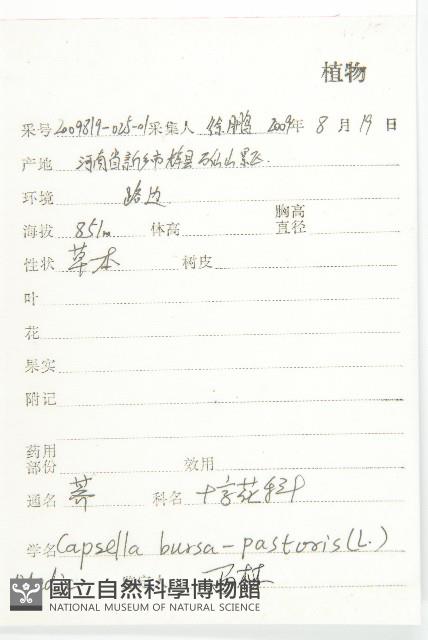 植物
采号 2009819-025-01 采集人 徐鹏 2009年 8 月 19 日
产地 河南省新乡市辉县
环境 路边
海拔 851m 体高 胸高直径
性状 草本 树皮
叶
花
果实
附记
药用部份 效用
通名 荠 科名 十字花科
学名 Capsella bursa-pastoris (L.)
國立自然科學博物館
NATIONAL MUSEUM OF NATURAL SCIENCE